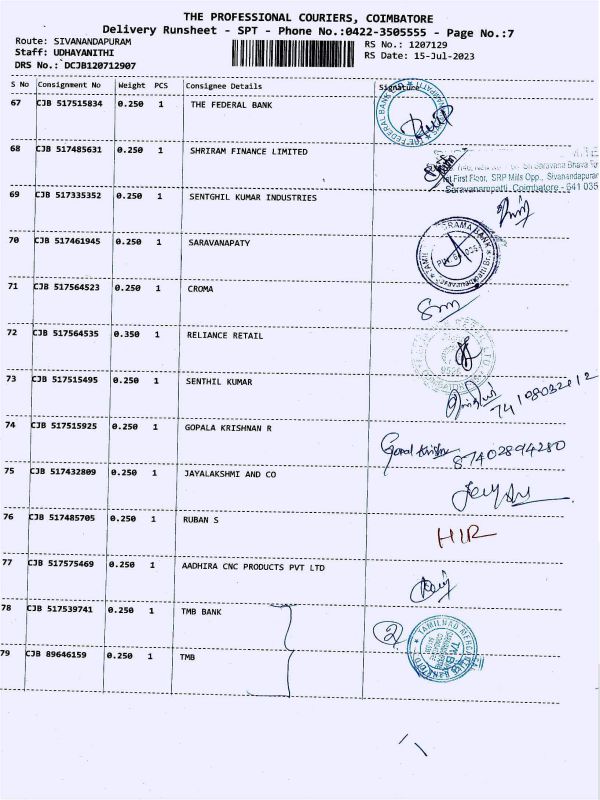 THE PROFESSIONAL COURIERS, COIMBATORE
Delivery Runsheet - SPT - Phone No.:0422-3505555 - Page No.:7
Route: SIVANANDAPURAM
RS No.: 1207129
Staff: UDHAYANITHI
RS Date: 15-Jul-2023
DRS No.: DCJB120712907
S No Consignment No Weight PCS Consignee Details Signature
67 CJB 517515834 0.250 1 THE FEDERAL BANK
THE FEDERAL BANK
68 CJB 517485631 0.250 1 SHRIRAM FINANCE LIMITED
Sri Saravana Bhava
1st First Floor, SRP Mills Opp., Sivanandapuram
Saravanampatti, Coimbatore - 641 035
69 CJB 517335352 0.250 1 SENTGHIL KUMAR INDUSTRIES
70 CJB 517461945 0.250 1 SARAVANAPATY
71 CJB 517564523 0.250 1 CROMA
72 CJB 517564535 0.350 1 RELIANCE RETAIL
73 CJB 517515495 0.250 1 SENTHIL KUMAR
74 CJB 517515925 0.250 1 GOPALA KRISHNAN R
Gopal Krishn 87402894280
75 CJB 517432809 0.250 1 JAYALAKSHMI AND CO
76 CJB 517485705 0.250 1 RUBAN S
HIR
77 CJB 517575469 0.250 1 AADHIRA CNC PRODUCTS PVT LTD
78 CJB 517539741 0.250 1 TMB BANK
2
TAMILNAD MERCANTILE BANK LTD
79 CJB 89646159 0.250 1 TMB